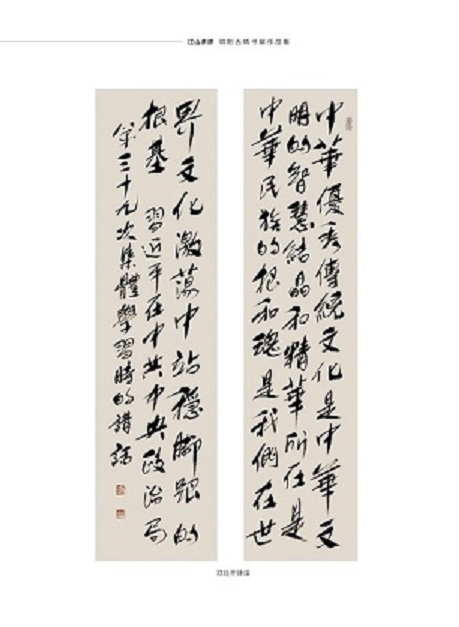 中華優秀傳統文化是中華文
明的智慧結晶和精華所在是
中華民族的根和魂是我們在世
界文化激蕩中站穩腳跟的
根基 習近平在中共中央政治局
第三十九次集體學習時的講話